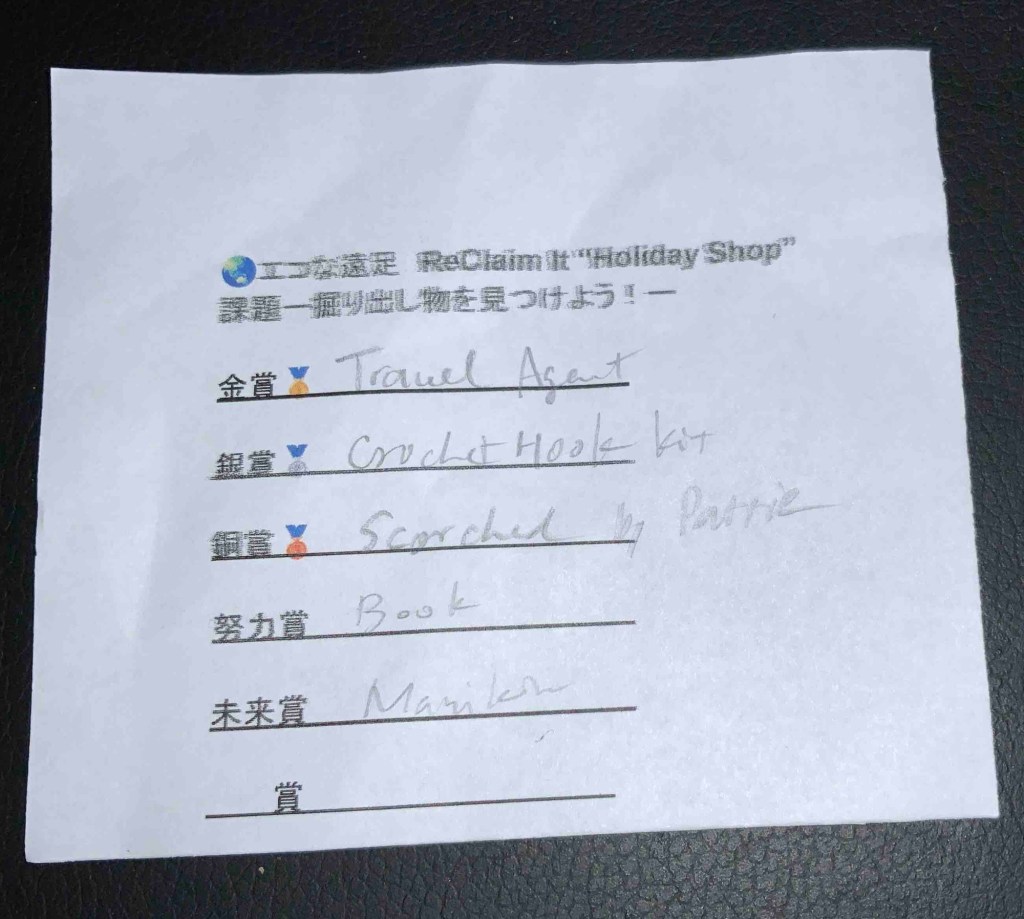 🌏エコな遠足 ReClaim It “Holiday Shop”
課題ー掘り出し物を見つけよう！ー
金賞🏅 Travel Agent
銀賞 Crochet Hook kit
銅賞 Scorched by
努力賞 Book
未来賞 Manikin
賞